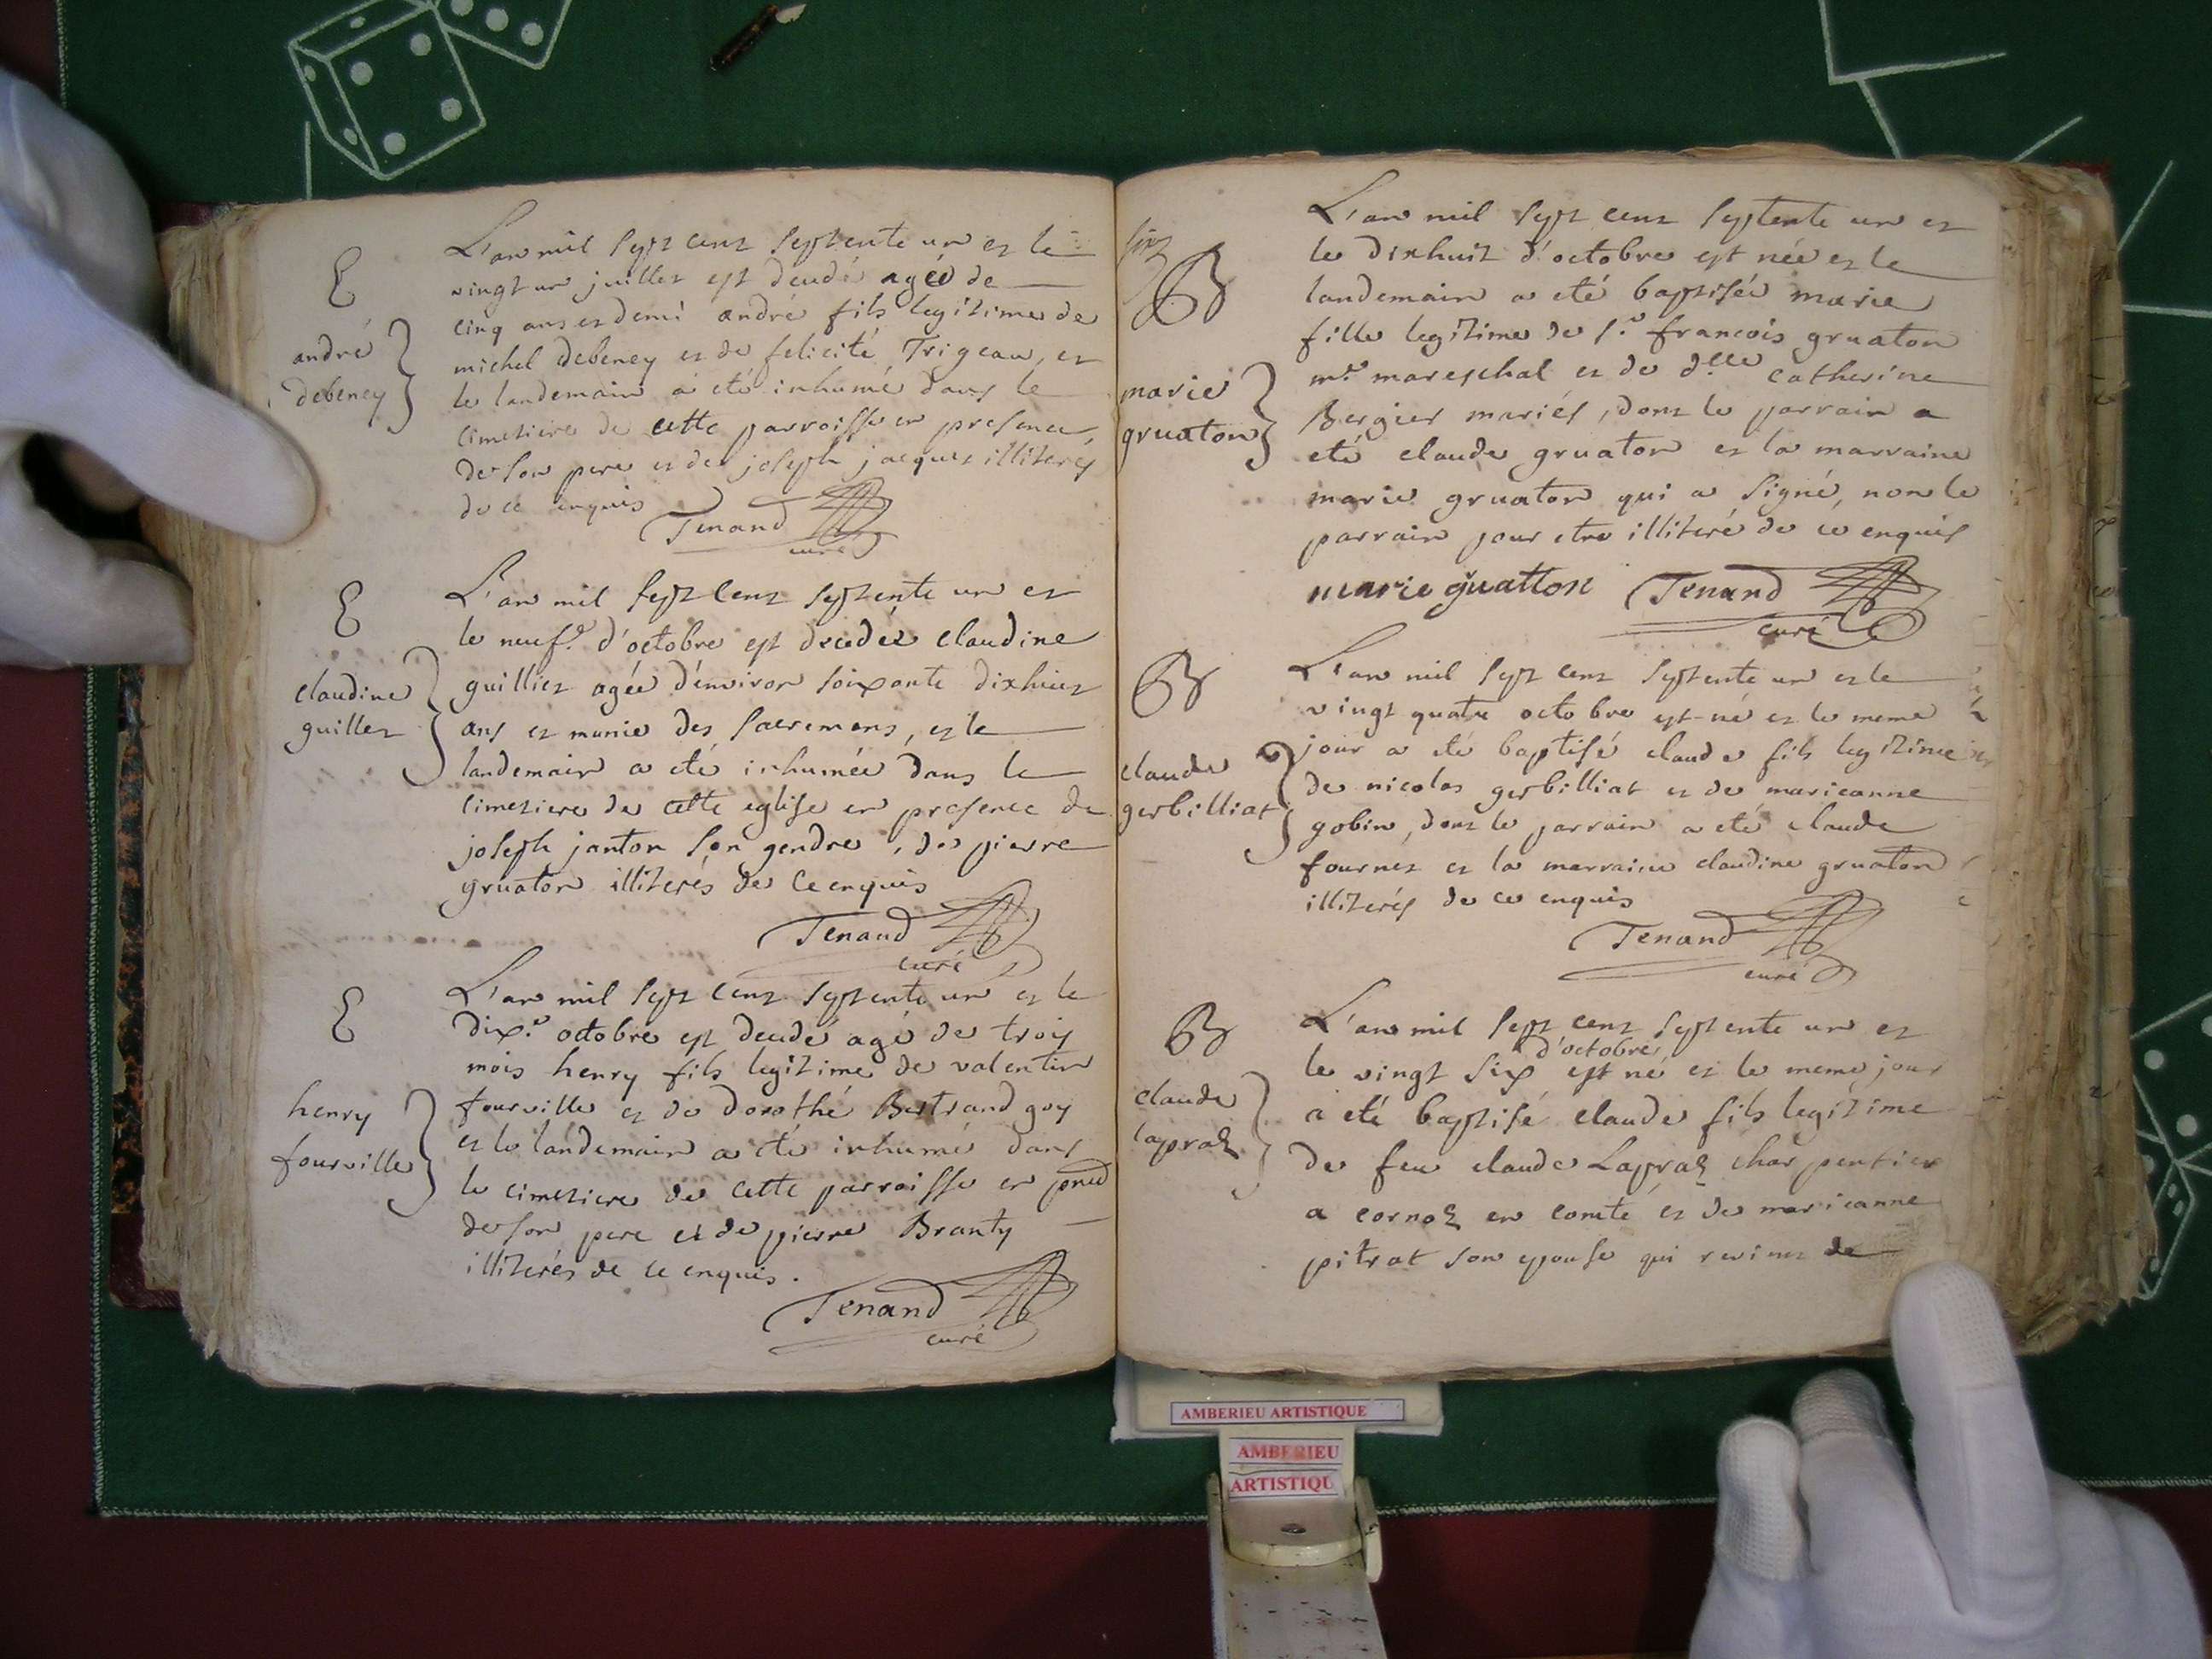 E
andré
debeney
L'an mil sept cent septente un et le
vingt un juillet est decedé agée de
cinq ans et demi andré fils legitime de
michel debeney et de felicité Trigeau, et
le landemain a été inhumé dans le
cimetiere de cette parroisse en presence
de son pere et de joseph jacquet illiterés
de ce enquis
Tenand
curé
E
claudine
guillet
L'an mil sept cent septente un et
le neuf.e d'octobre est decedée claudine
guilliet agée d'environ soixante dixhuit
ans et munie des sacremens, et le
landemain a été inhumée dans le
cimetiere de cette eglise en presence de
joseph janton son gendre, de pierre
gruaton illiterés de ce enquis
Tenand
curé
E
henry
fourville
L'an mil sept cent septente un et le
dix.e octobre est decedé agé de trois
mois henry fils legitime de valentin
fourville et de dorothé Bertrand guy
et le landemain a été inhumé dans
le cimetiere de cette parroisse en
de son pere et de pierre Branty
illiterés de ce enquis.
Tenand
curé
B
marie
gruaton
L'an mil sept cent septente un et
le dixhuit d'octobre est née et le
landemain a eté baptisée marie
fille legitime de s.r francois gruaton
m.e mareschal et de d.lle catherine
Bergier mariés, dont le parrain a
eté claude gruaton et la marraine
marie gruaton qui a signé, non le
parrain pour etre illiteré de ce enquis
marie gruatton Tenand
curé
B
claude
gerbilliat
L'an mil sept cent septente un et le
vingt quatre octobre est né et le meme
jour a été baptisé claude fils legitime
de nicolas gerbilliat et de marieanne
gobin, dont le parrain a eté claude
fournet et la marraine claudine gruaton
illiterés de ce enquis
Tenand
curé
B
claude
lapraz
L'an mil sept cent septente un et
d'octobre
le vingt six est né et le meme jour
a eté baptisé claude fils legitime
de feu claude Lapraz charpentier
a cornoz en comté et de marieanne
pitrat son epouse qui revient de
AMBERIEU ARTISTIQUE
AMBERIEU
ARTISTIQU